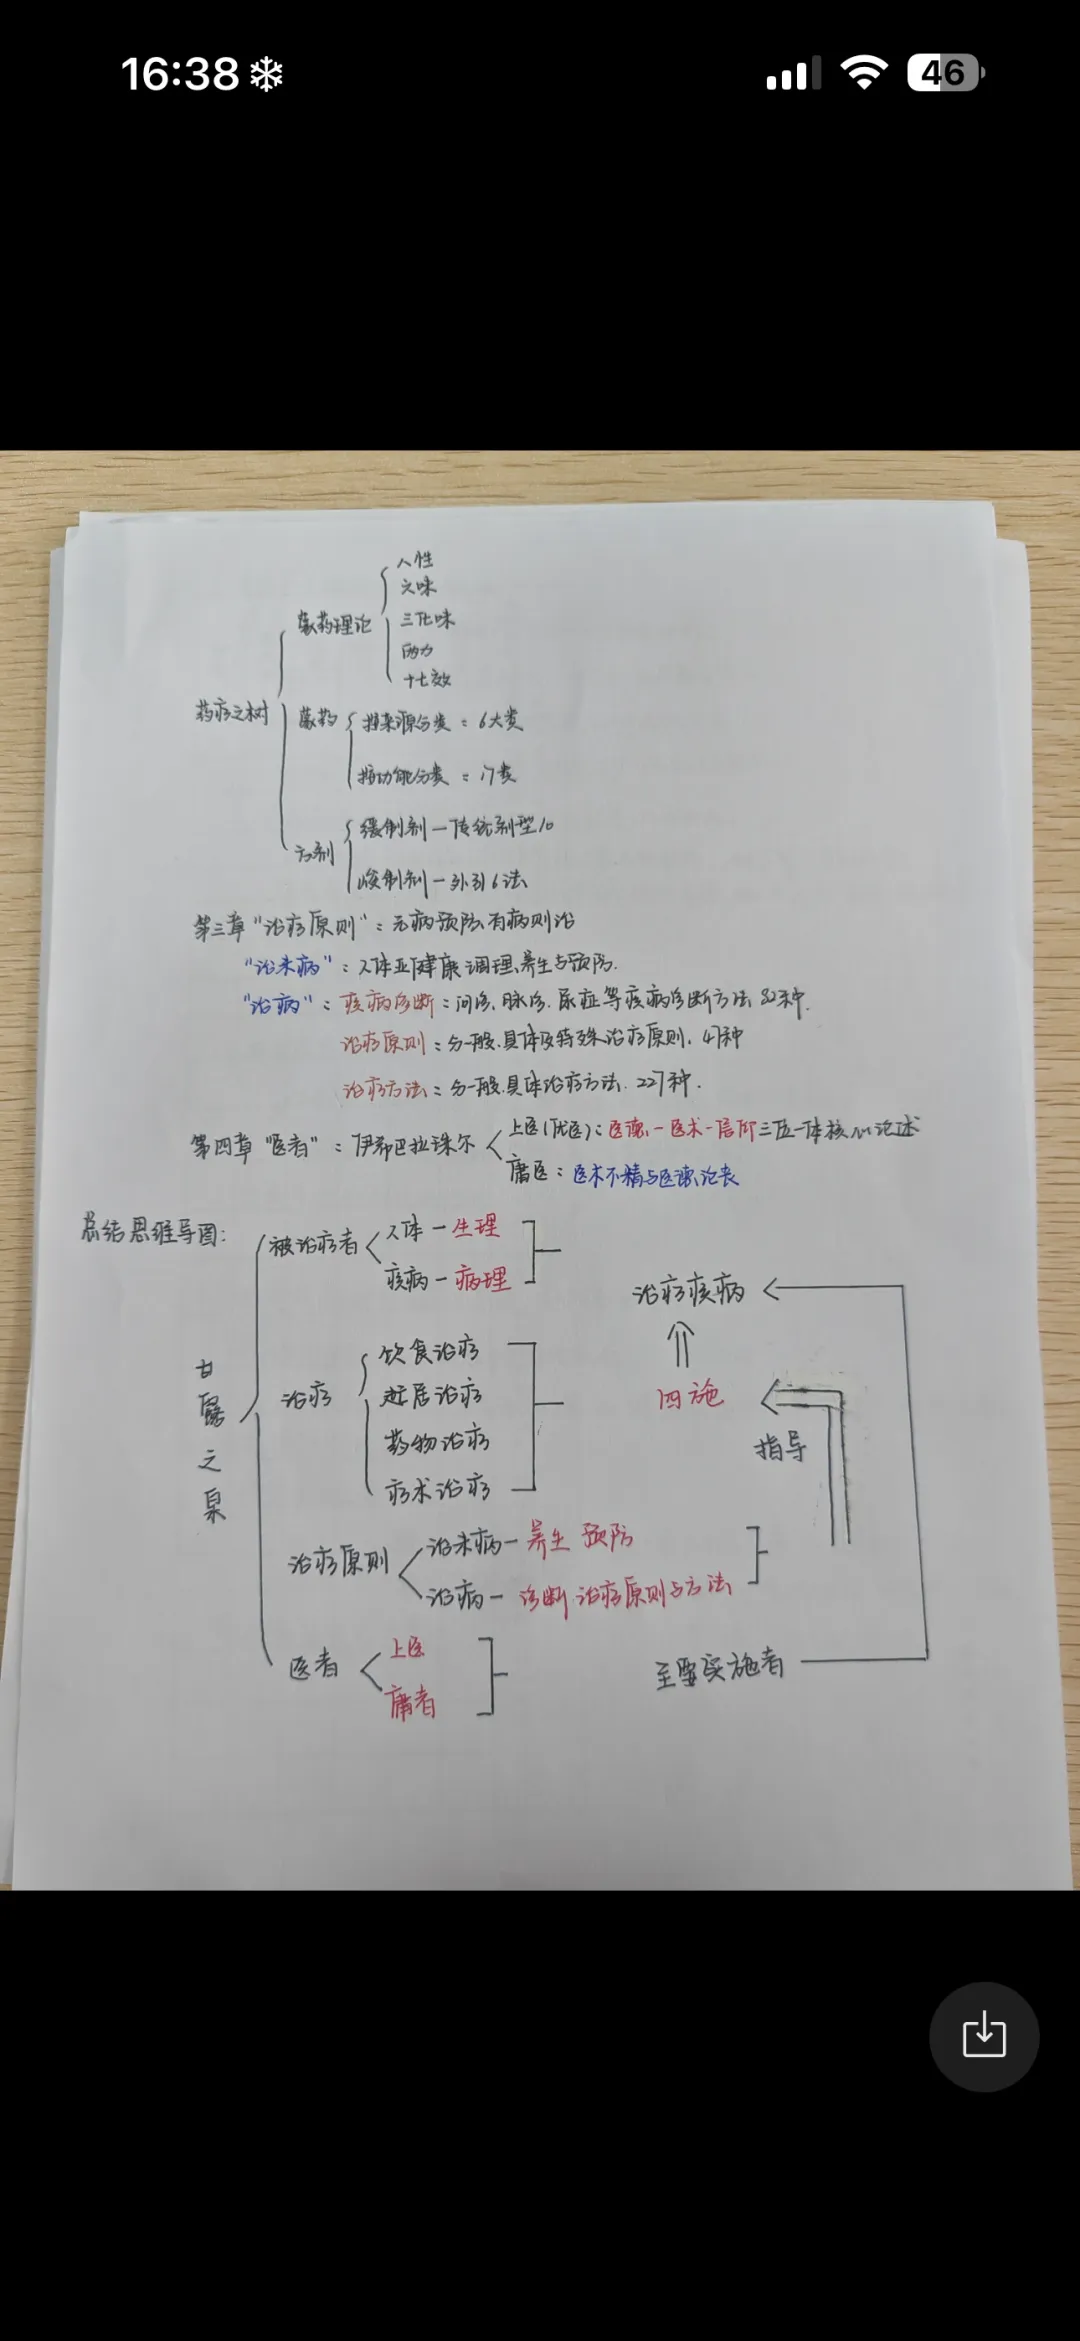 16:38
46
八性
六味
蒙药理论
三化味
两力
十七效
药疗之树
蒙药
按来源分类：6大类
按功能分类：17类
方剂
缓制剂—传统剂型10
峻制剂—外引6法
第三章“治疗原则”：无病预防、有病则治
“治未病”：人体亚健康调理、养生与预防.
“治病”：疾病诊断：问诊、脉诊、尿症等疾病诊断方法 32种.
治疗原则：分一般、具体及特殊治疗原则、47种
治疗方法：分一般、具体治疗方法、227种.
第四章“医者”：伊希巴拉珠尔
上医(优医)：医德—医术—信仰三位一体核心论述
庸医：医术不精与医德沦丧
总结思维导图：
被治疗者
人体—生理
疾病—病理
治疗疾病
甘露之泉
治疗
饮食治疗
起居治疗
药物治疗
疗术治疗
四施
指导
治疗原则
治未病—养生 预防
治病—诊断、治疗原则与方法
医者
上医
庸者
主要实施者